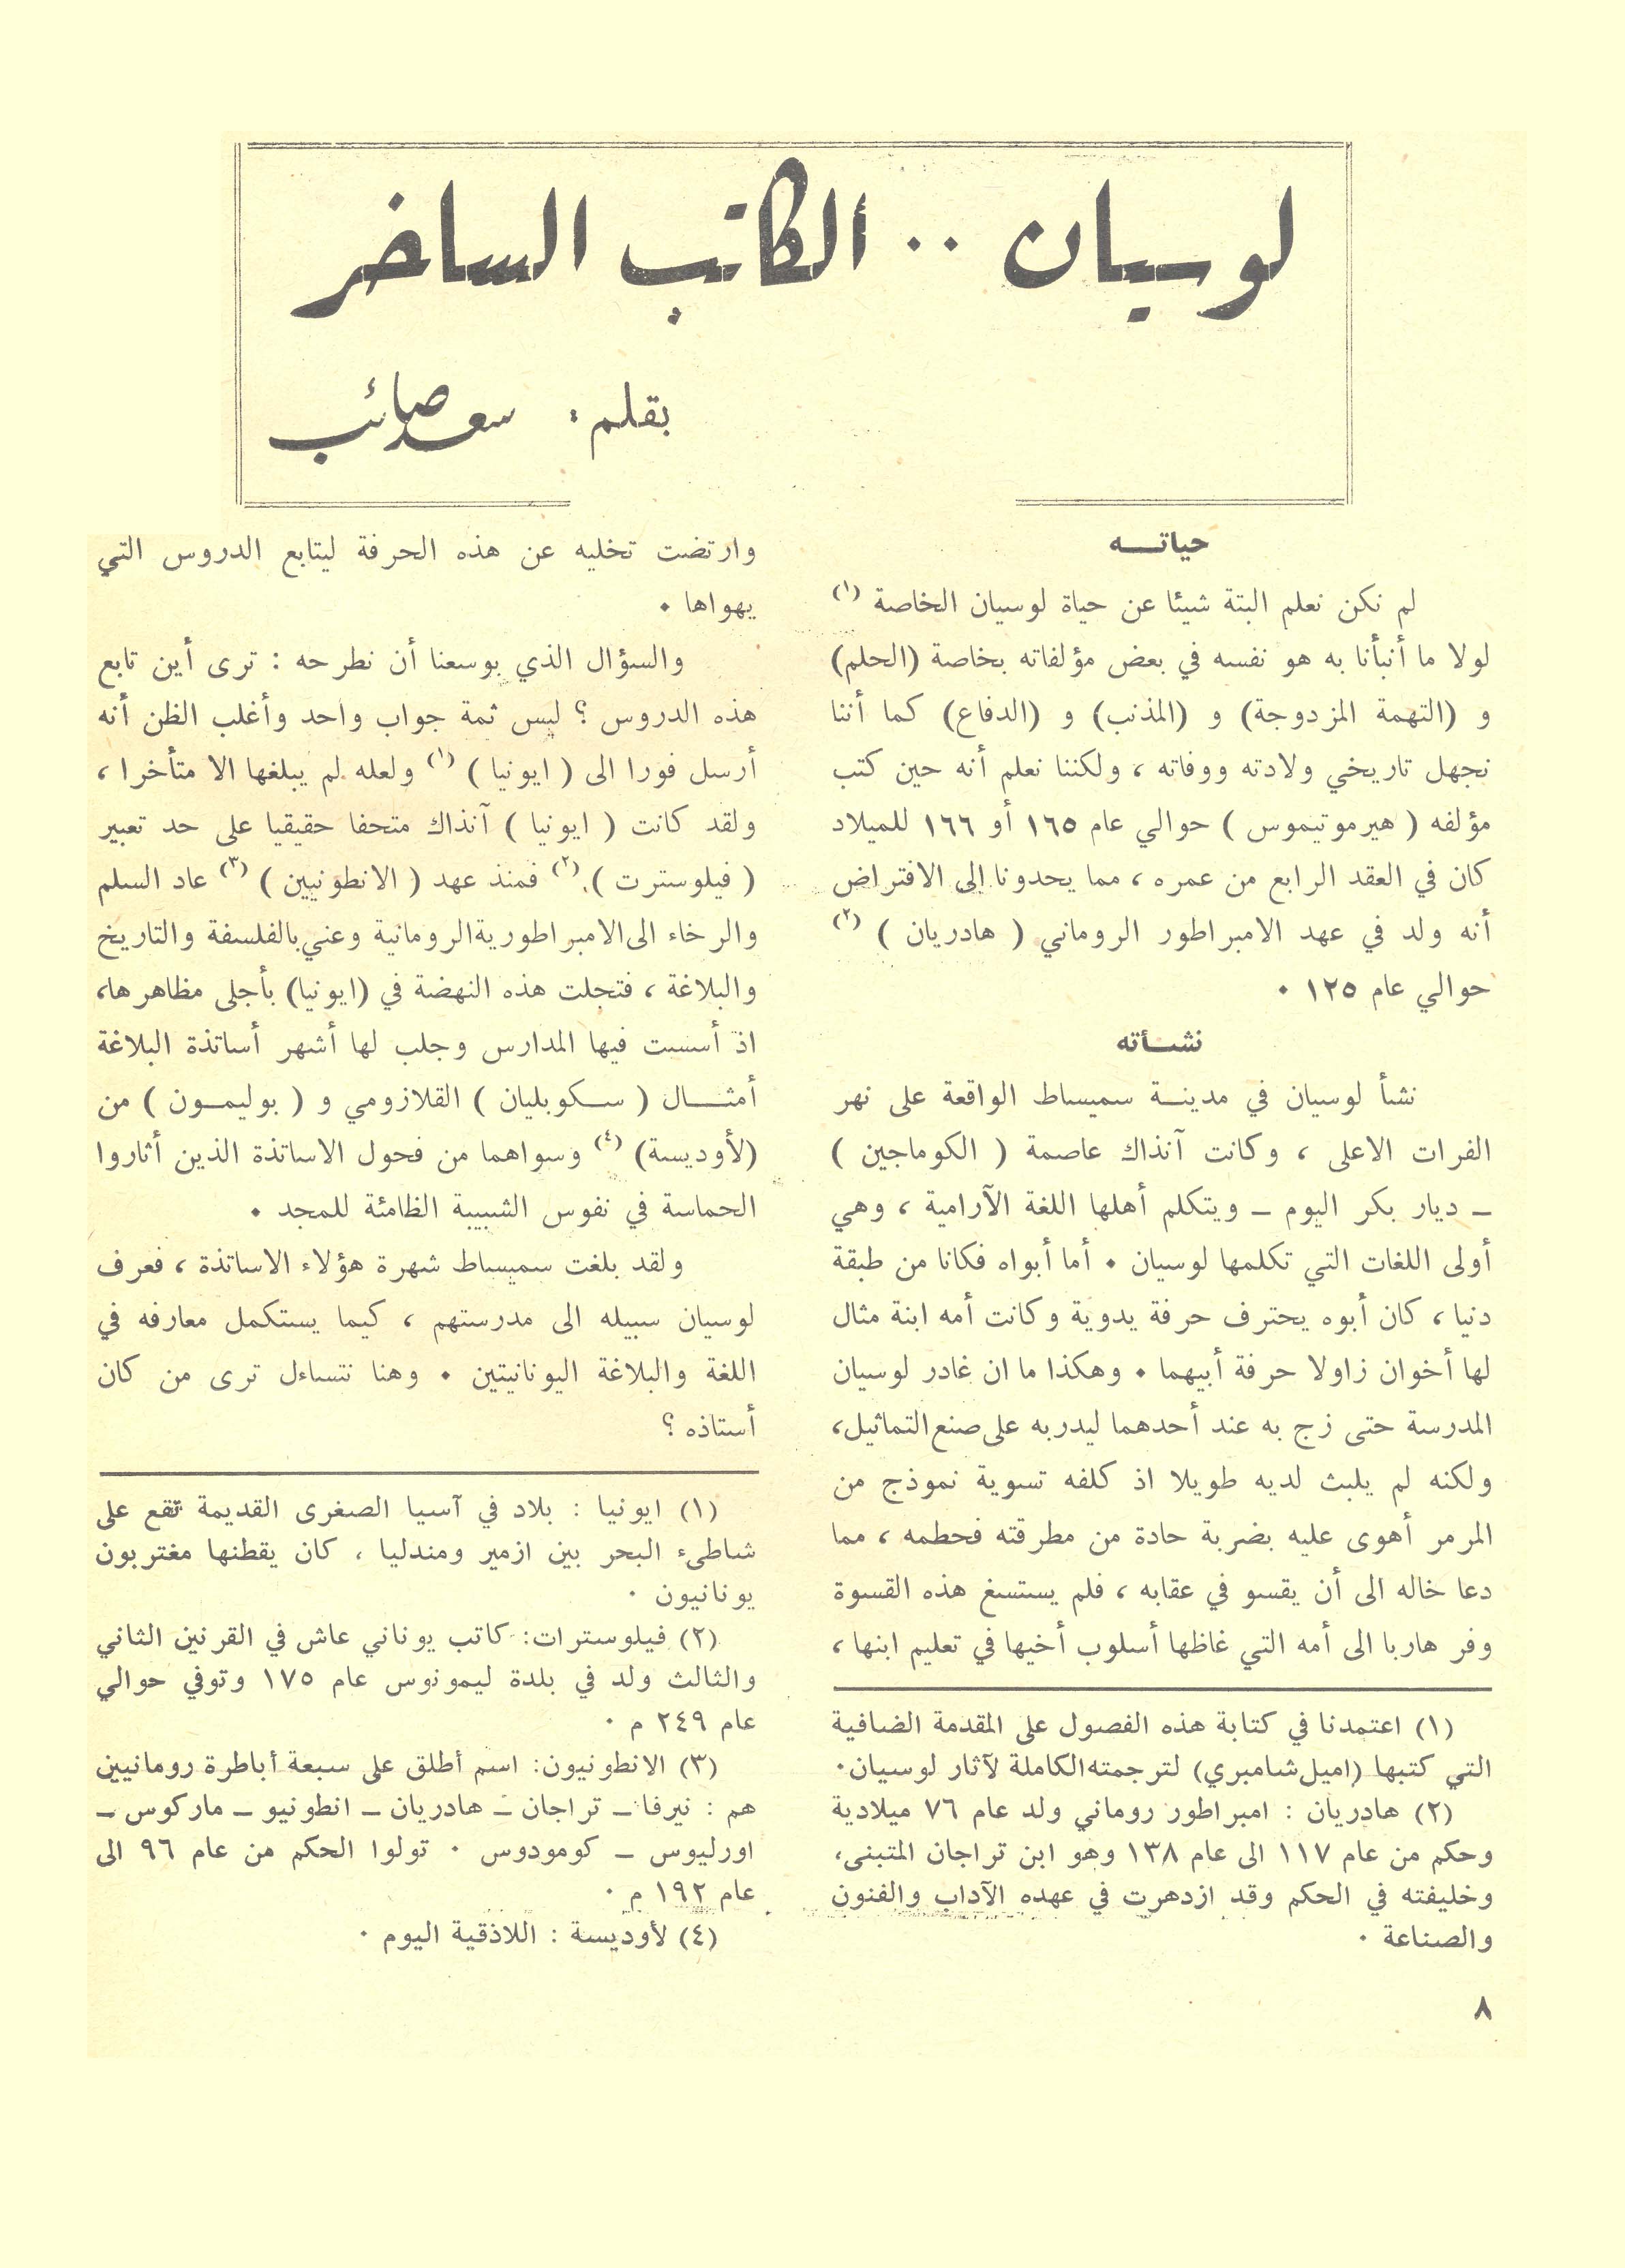 لوسيان ٠٠ ألكاتب الساخر
بقلم : سعد صائب
حياتـــه
لم نكن نعلم البتة شيئا عن حياة لوسيان الخاصة (١)
لولا ما أنبأنا به هو نفسه في بعض مؤلفاته بخاصة (الحلم)
و (التهمة المزدوجة) و (المذنب) و (الدفاع) كما أننا
نجهل تاريخي ولادته ووفاته ، ولكننا نعلم أنه حين كتب
مؤلفه ( هيرموتيموس ) حوالي عام ١٦٥ أو ١٦٦ للميلاد
كان في العقد الرابع من عمره ، مما يحدونا إلى الافتراض
أنه ولد في عهد الامبراطور الروماني ( هادريان ) (٢)
حوالي عام ١٢٥ ٠
نشــأته
نشأ لوسيان في مدينــة سميساط الواقعة على نهر
الفرات الاعلى ، وكانت آنذاك عاصمة ( الكوماجين )
ـ ديار بكر اليوم ـ ويتكلم أهلها اللغة الآرامية ، وهي
أولى اللغات التي تكلمها لوسيان ٠ أما أبواه فكانا من طبقة
دنيا ، كان أبوه يحترف حرفة يدوية وكانت أمه ابنة مثال
لها أخوان زاولا حرفة أبيهما ٠ وهكذا ما ان غادر لوسيان
المدرسة حتى زج به عند أحدهما ليدربه على صنع التماثيل،
ولكنه لم يلبث لديه طويلا اذ كلفه تسوية نموذج من
المرمر أهوى عليه بضربة حادة من مطرقته فحطمه ، مما
دعا خاله الى أن يقسو في عقابه ، فلم يستسغ هذه القسوة
وفر هاربا الى أمه التي غاظها أسلوب أخيها في تعليم ابنها ،
(١) اعتمدنا في كتابة هذه الفصول على المقدمة الضافية
التي كتبها (اميل شامبري) لترجمته الكاملة لآثار لوسيان٠
(٢) هادريان : امبراطور روماني ولد عام ٧٦ ميلادية
وحكم من عام ١١٧ الى عام ١٣٨ وهو ابن تراجان المتبنى،
وخليفته في الحكم وقد ازدهرت في عهده الآداب والفنون
والصناعة ٠
وارتضت تخليه عن هذه الحرفة ليتابع الدروس التي
يهواها ٠
والسؤال الذي بوسعنا أن نطرحه : ترى أين تابع
هذه الدروس ؟ ليس ثمة جواب واحد وأغلب الظن أنه
أرسل فورا الى ( ايونيا ) (١) ولعله لم يبلغها الا متأخرا ،
ولقد كانت ( ايونيا ) آنذاك متحفا حقيقيا على حد تعبير
( فيلوسترت ) (٢) فمنذ عهد ( الانطونيين ) (٣) عاد السلم
والرخاء الى الامبراطورية الرومانية وعني بالفلسفة والتاريخ
والبلاغة ، فتجلت هذه النهضة في (ايونيا) بأجلى مظاهرها،
اذ أسست فيها المدارس وجلب لها أشهر أساتذة البلاغة
أمثــــال ( ســكوبليان ) القلازومي و ( بوليمــون ) من
(لأوديسة) (٤) وسواهما من فحول الاساتذة الذين أثاروا
الحماسة في نفوس الشبيبة الظامئة للمجد ٠
ولقد بلغت سميساط شهرة هؤلاء الاساتذة ، فعرف
لوسيان سبيله الى مدرستهم ، كيما يستكمل معارفه في
اللغة والبلاغة اليونانيتين ٠ وهنا نتساءل ترى من كان
أستاذه ؟
(١) ايونيا : بلاد في آسيا الصغرى القديمة تقع على
شاطىء البحر بين ازمير ومندليا ، كان يقطنها مغتربون
يونانيون ٠
(٢) فيلوسترات: كاتب يوناني عاش في القرنين الثاني
والثالث ولد في بلدة ليمونوس عام ١٧٥ وتوفي حوالي
عام ٢٤٩ م ٠
(٣) الانطونيون: اسم أطلق على سبعة أباطرة رومانيين
هم : نيرفا ـ تراجان ـ هادريان ـ انطونيو ـ ماركوس ـ
اورليوس ـ كومودوس ٠ تولوا الحكم من عام ٩٦ الى
عام ١٩٢ م ٠
(٤) لأوديسة : اللاذقية اليوم ٠
٨